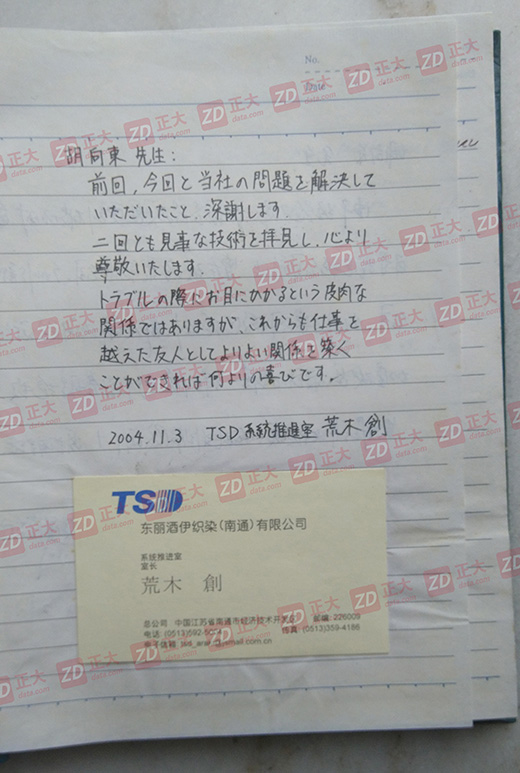 No.
Date
胡向東 先生：
前回，今回と当社の問題を解決して
いただいたこと、深謝します．
二回とも見事な技術を拝見し、心より
尊敬いたします．
トラブルの際にお目にかかるという皮肉な
関係ではありますが、これからも仕事を
越えた友人としてよりよい関係を築く
ことができれば何よりの喜びです。
2004.11.3 TSD 系統推進室 荒木 創
TSD
东丽酒伊织染(南通)有限公司
系统推进室
室长
荒木 創
总公司 中国江苏省南通市经济技术开发区 邮编: 226009
电话: (0513)592- 传真: (0513)359-4186
电子信箱: @email.com.cn
ZD 正大
data.com